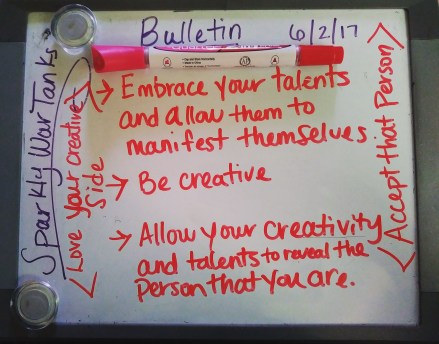 Bulletin 6/2/17
→ Embrace your talents
and allow them to
manifest themselves
→ Be creative
→ Allow your creativity
and talents to reveal the
Person that you are.
Sparkly War Tanks
<Love your creative>
Side
<Accept that Person>